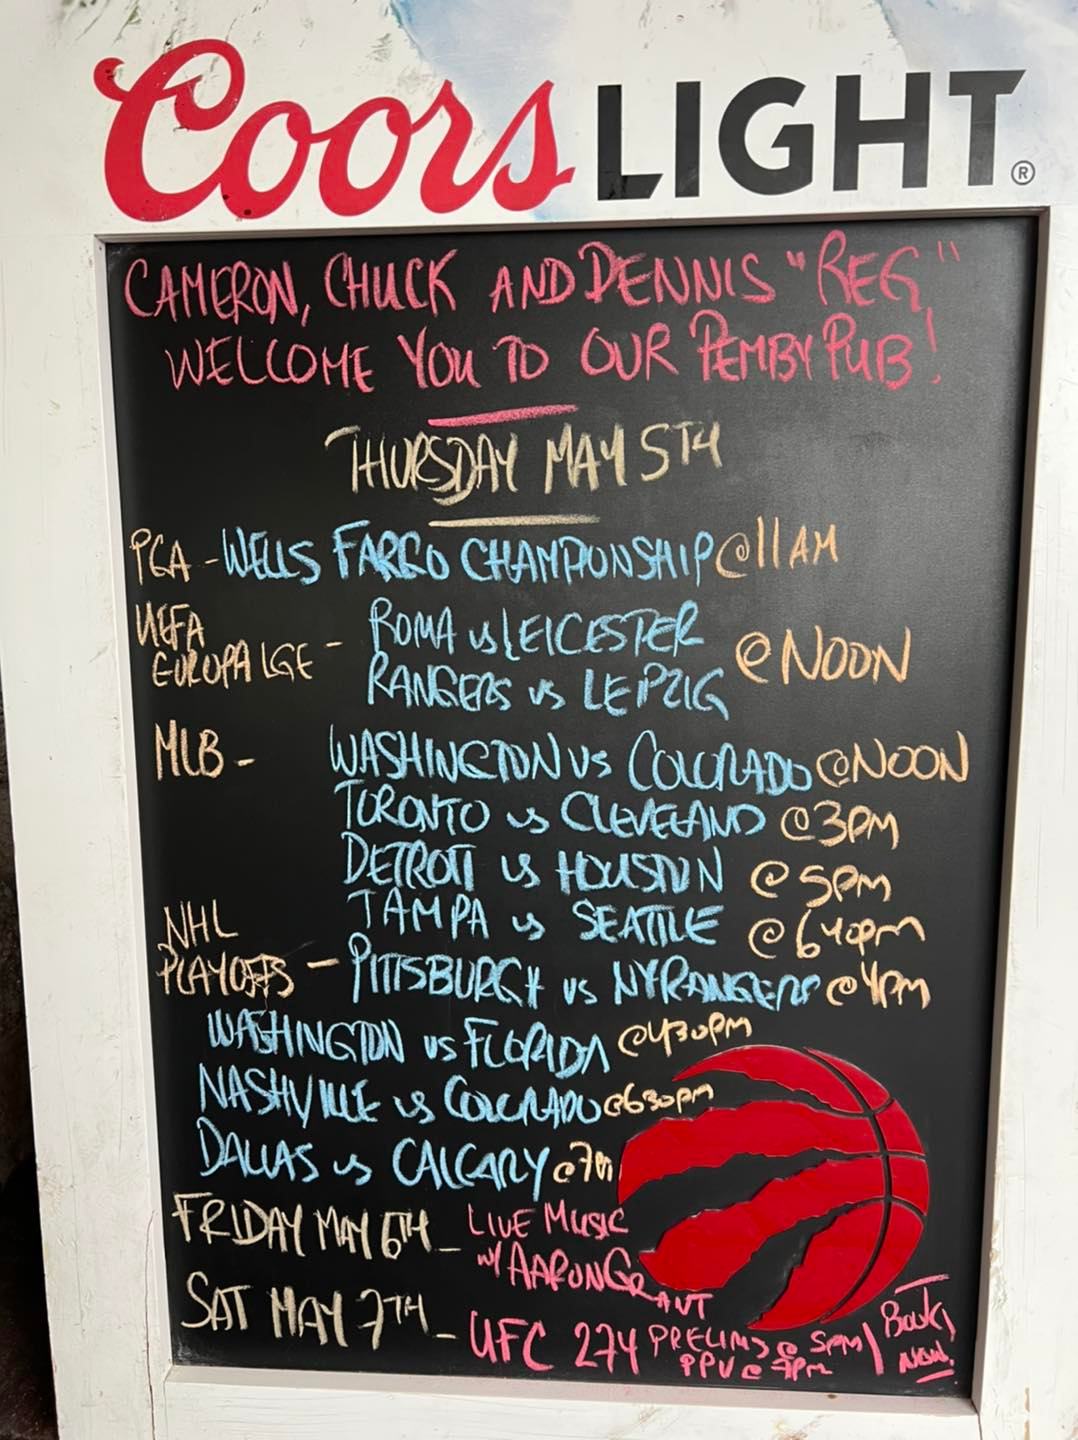 Coors LIGHT ®
CAMERON, CHUCK AND DENNIS "REG"
WELCOME YOU TO OUR PEMBY PUB!
THURSDAY MAY 5TH
PGA - WELLS FARGO CHAMPIONSHIP @ 11 AM
UEFA EUROPA LGE - ROMA vs LEICESTER
RANGERS vs LEIPZIG @ NOON
MLB - WASHINGTON vs COLORADO @ NOON
TORONTO vs CLEVELAND @ 3PM
DETROIT vs HOUSTON @ 5PM
TAMPA vs SEATTLE @ 640pm
NHL
PLAYOFFS - PITTSBURGH vs NY RANGERS @ 4PM
WASHINGTON vs FLORIDA @ 430PM
NASHVILLE vs COLORADO @ 630pm
DALLAS vs CALGARY @ 7
FRIDAY MAY 6TH - LIVE MUSIC
w/ AARON GRANT
SAT MAY 7TH - UFC 274 PRELIMS @ 5PM / BOOK
PPV @ 7pm NOW!